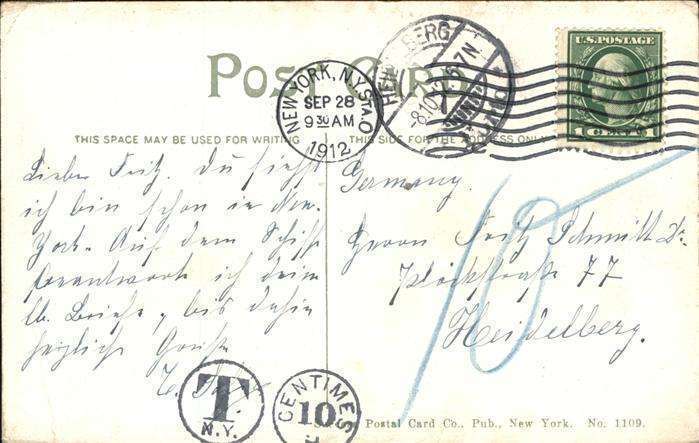 POST CARD
THIS SPACE MAY BE USED FOR WRITING
THIS SIDE FOR THE ADDRESS ONLY
NEW YORK, N.Y. STA. O
SEP 28
9 30 AM
1912
HEIDELBERG
8.10.
6-7N
U.S. POSTAGE
1 CENT 1
Lieber Fritz. Du siehst
ich bin schon in New-
York. Auf dem Schiff
beantworte ich dein
lb. Briefe, bis dahin
herzliche Grüße
Germany.
Herrn Fritz Schmitt Dr.
Plöckstraße 77
Heidelberg.
10
T.
N.Y.
CENTIMES
10
Postal Card Co., Pub., New York. No. 1109.